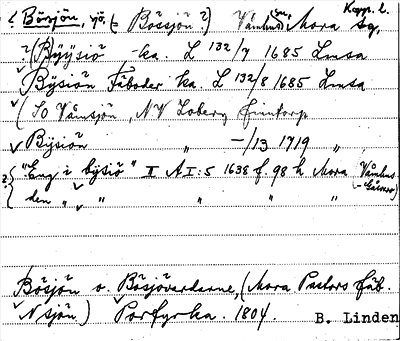 ? Bösjön, sjö, (= Bössjön?) Våmhus sn, Mora tg, Kopp. l.
? (Byysiö ka. L 132/7 1685 Lmsa
Bysiön Fäboder ka. L 132/8 1685 Lmsa
(SO Våmsjön, NV Loberg finntorp
Bysiön " -/13 1719 "
? { "Eng i bÿsiö" II A I:5 1638 f. 98 h Mora Våmhus
den " " " " "
Bösjön o. Bösjövardarne, (Mora Pastors fäb.
N sjön.) Porfyrka. 1804.
B. Linden